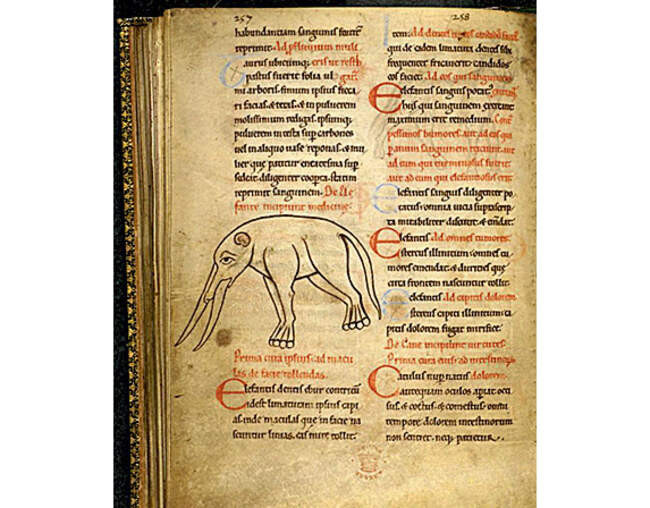 257
habundantiam sanguinis fluente
reprimit. Ad
Taurus ubicunq;
pastus fuerit folia ul
mi arboris. fimum ipsius sicca
ri facias. & teras. & in puluerem
mollissimum redigas. ipsumq;
puluerem in testa sup carbones
uel in aliquo uase reponas. & mu
lier que patitur
sedeat diligenter coopta. statim
reprimit sanguinem. De Ele
fante incipiunt medicine.
Prima cura ipsius. ad macu
las de facie tollendas.
Elefantis dentis ebur
idest limaturam ipsius
maculas que in facie na
scuntur linias. eas mire tollit.
258
Item. Ad dentes
qui de eadem limatura dentes sibi
frequenter fricuerit. candidos
eos faciet. Ad eos qui sanguinem
Elefantis sanguis potat.
his qui sanguinem
maximum erit remedium. Cont
pessimos humores. aut ad eos qui
sanguinem reiciunt. aut
ad eum qui
aut ad eum qui elefantiosus erit.
Elefantis sanguis diligenter po
tatus. omnia uicia suprascrip
ta mirabiliter discutit. & emdat.
Elefantis. Ad omnes tumores.
stercus illinitum. omnes tu
mores emendat. & duricies que
circa frontem nascuntur tollit.
Elefantis. Ad capitis dolorem.
stercus capiti illinitum. ca
pitis dolorem fugat mirifice.
De Cane incipiunt uirtutes.
Prima cura eius. ad intestinoru
Catulus nup natus dolorem.
antequam oculos apiat. occi
sus. & coctus. & comestus. omni
tempore dolorem intestinorum
non sentiet. neq; patietur.